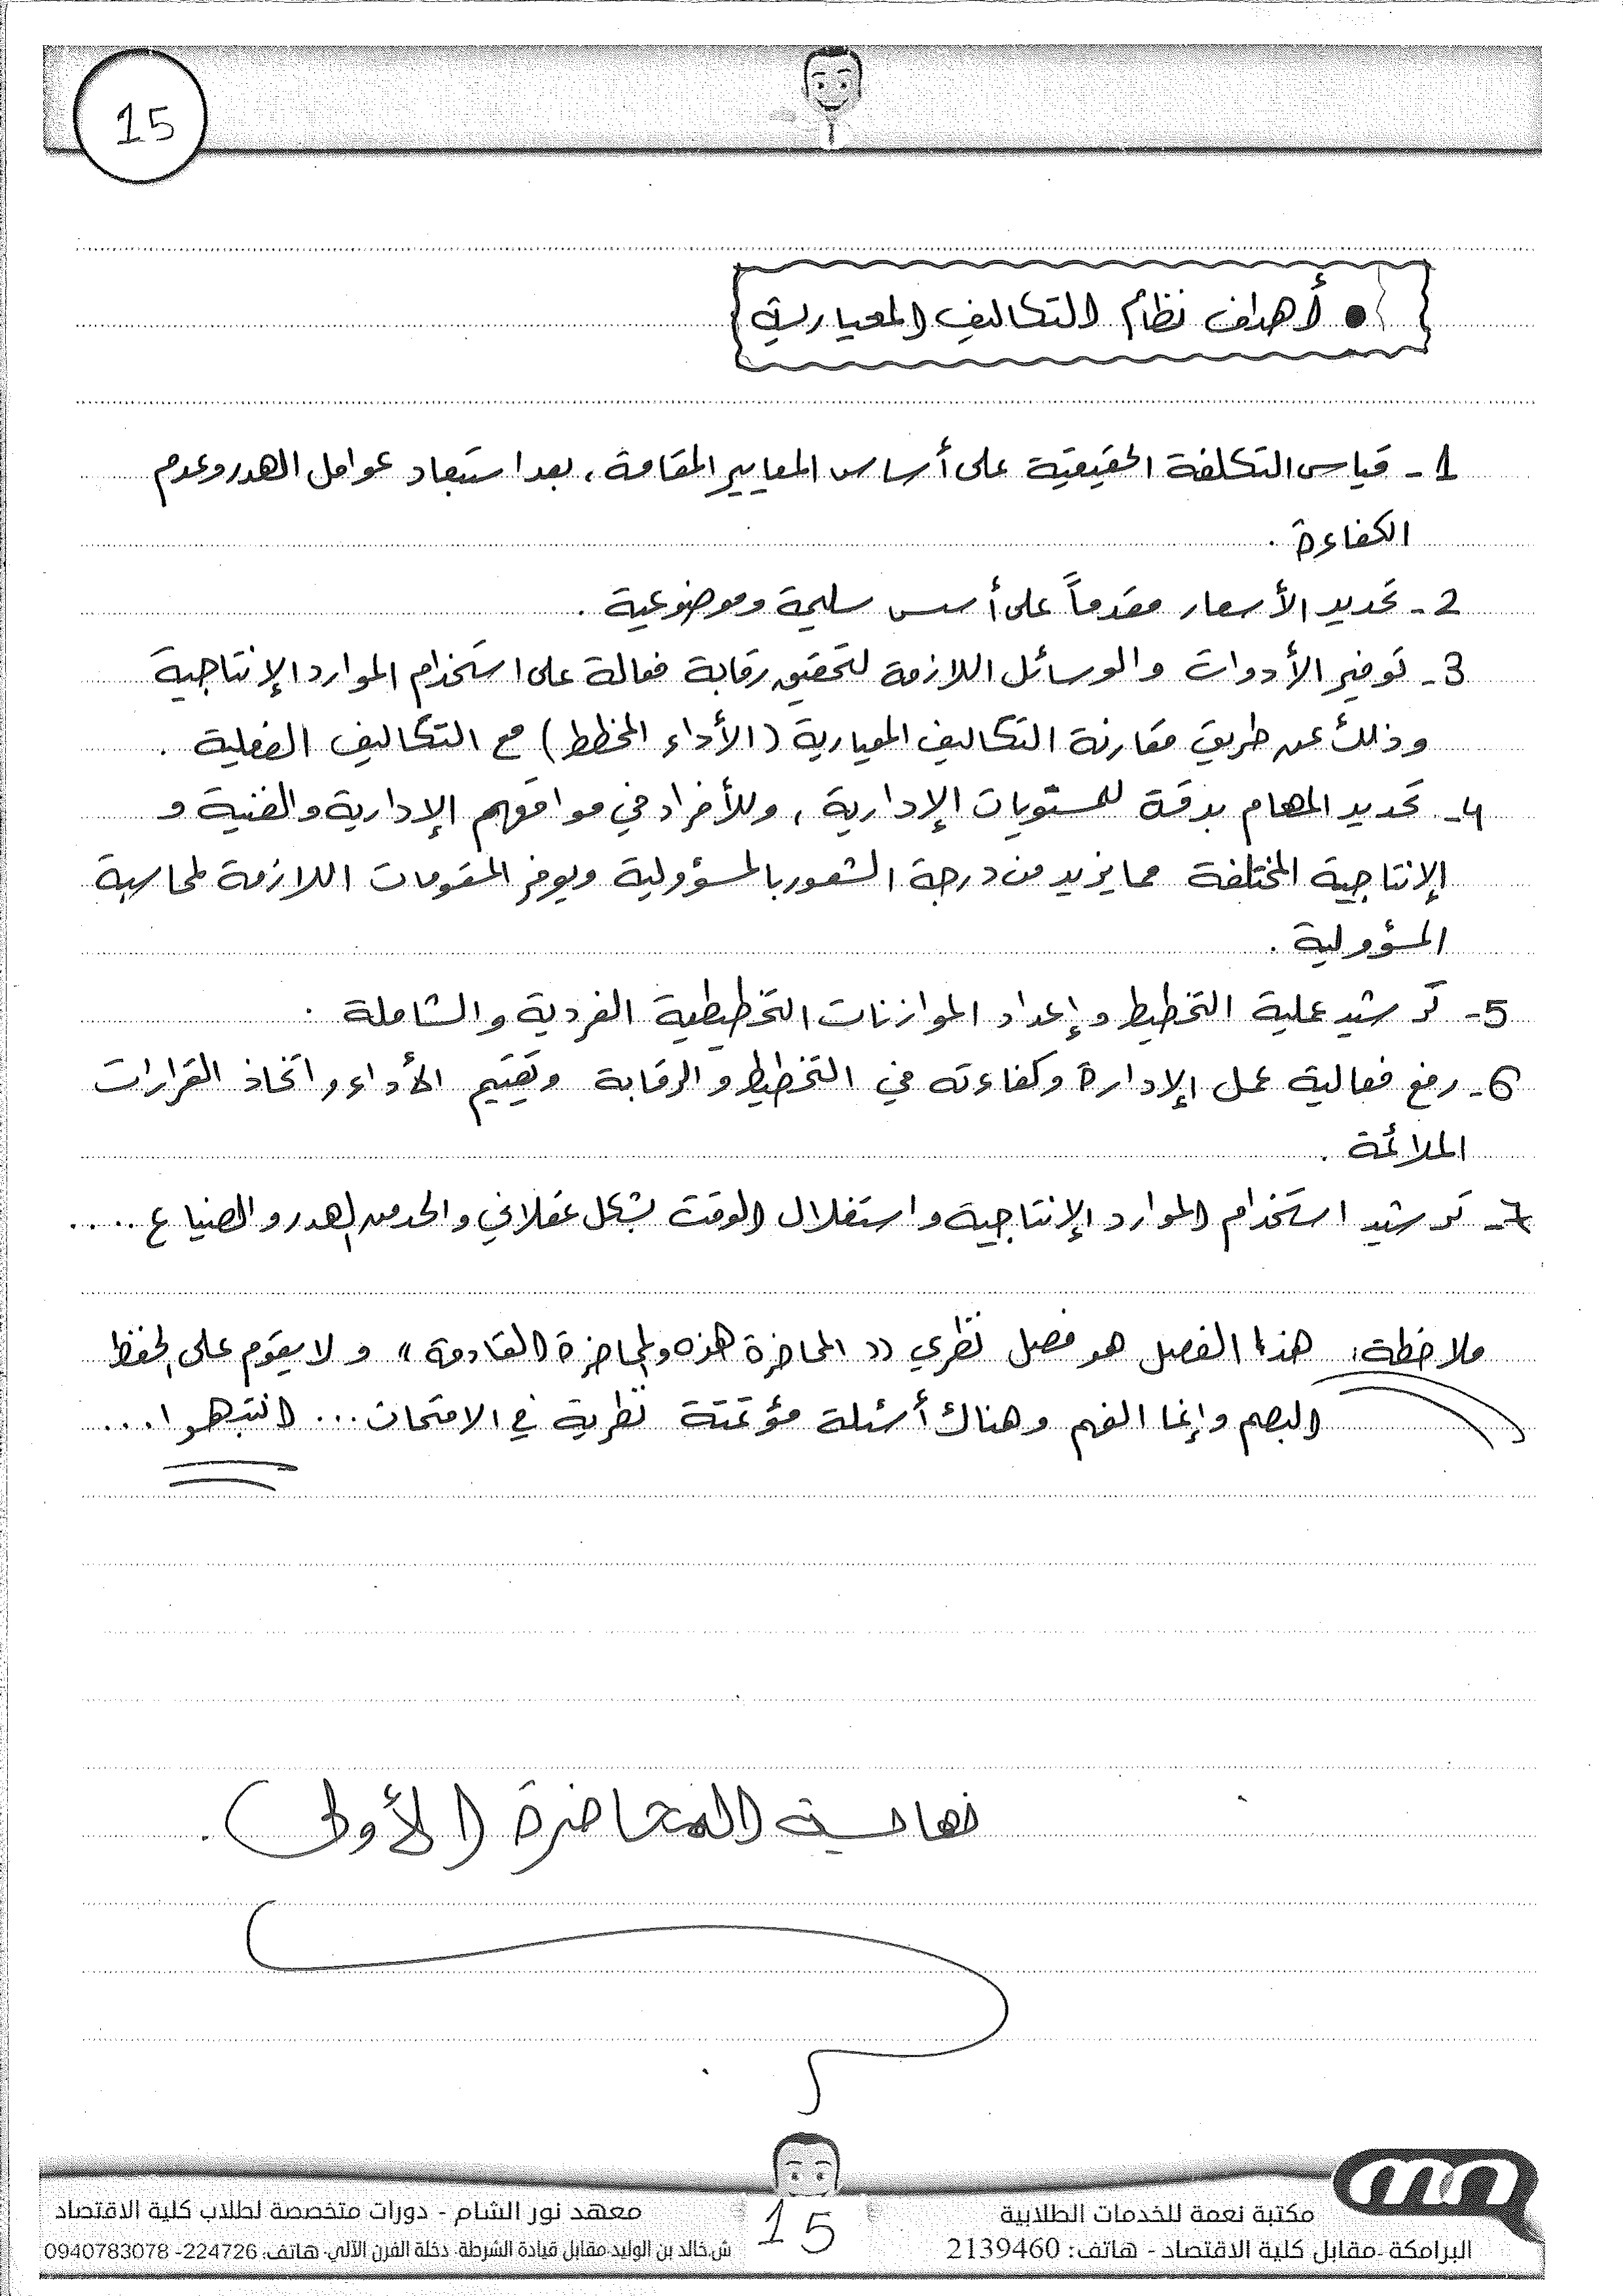 15
• أهداف نظام التكاليف المعيارية
1- قياس التكلفة الحقيقية على أساس المعايير المقامة، بعد استبعاد عوامل الهدر وعدم
الكفاءة.
2- تحديد الأسعار مقدماً على أسس سليمة وموضوعية.
3- توفير الأدوات والوسائل اللازمة لتحقيق رقابة فعالة على استخدام الموارد الإنتاجية
وذلك عن طريق مقارنة التكاليف المعيارية (الأداء المخطط) مع التكاليف الفعلية.
4- تحديد المهام بدقة للمستويات الإدارية، وللأفراد في مواقعهم الإدارية والفنية و
الإنتاجية المختلفة مما يزيد من درجة الشعور بالمسؤولية ويوفر المقومات اللازمة لمحاسبة
المسؤولية.
5- ترشيد عملية التخطيط وإعداد الموازنات التخطيطية الفردية والشاملة.
6- رفع فعالية عمل الإدارة وكفاءته في التخطيط والرقابة وتقييم الأداء واتخاذ القرارات
الملائمة.
7- ترشيد استخدام الموارد الإنتاجية واستغلال الوقت بشكل عقلاني والحد من الهدر والضياع ....
ملاحظة: هذا الفصل هو فصل نظري (( المحاضرة هذه والمحاضرة القادمة )) ولا يقوم على الحفظ
البصم وإنما الفهم وهناك أسئلة مؤتمتة نظرية في الامتحان... انتبهوا...
نهاية المحاضرة (الأولى).
15
مكتبة نعمة للخدمات الطلابية
البرامكة -مقابل كلية الاقتصاد - هاتف: 2139460
معهد نور الشام - دورات متخصصة لطلاب كلية الاقتصاد
ش.خالد بن الوليد-مقابل قيادة الشرطة- دخلة الفرن الآلي- هاتف: 224726- 0940783078